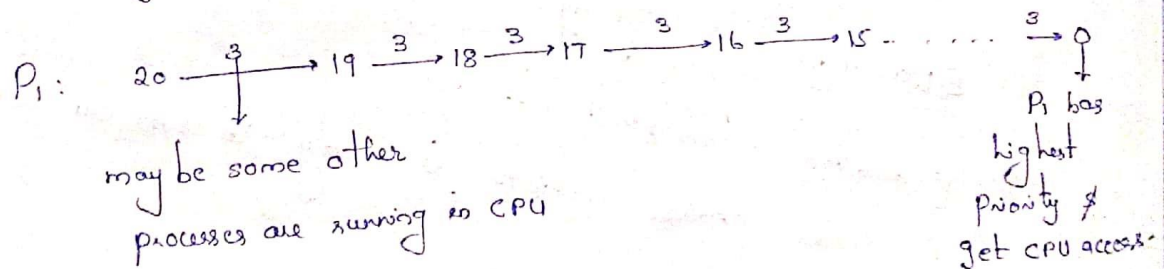 P₁ : 20 —3→ 19 —3→ 18 —3→ 17 —3→ 16 —3→ 15 .. ..... —3→ 0
may be some other
processes are running in CPU
P₁ has
highest
priority &
get CPU access.